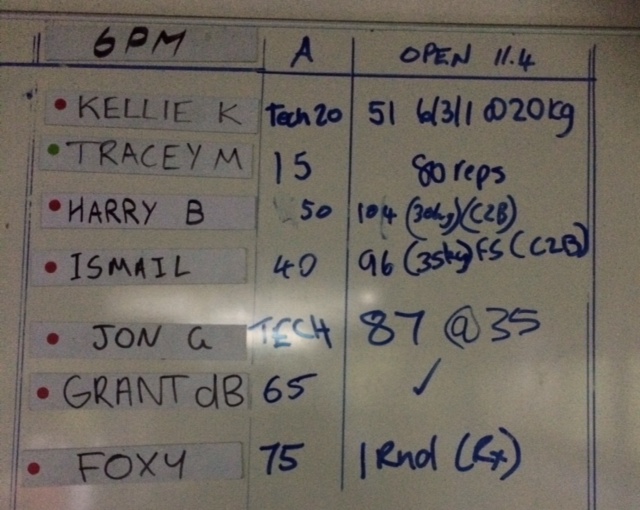 6PM A OPEN 11.4
KELLIE K Tech 20 51 6/3/1 @20kg
TRACEY M 15 80 reps
HARRY B 50 104 (30kg) (C2B)
ISMAIL 40 96 (35kg) FS (C2B)
JON G TECH 87 @ 35
GRANT dB 65 ✓
FOXY 75 1 Rnd (Rx)